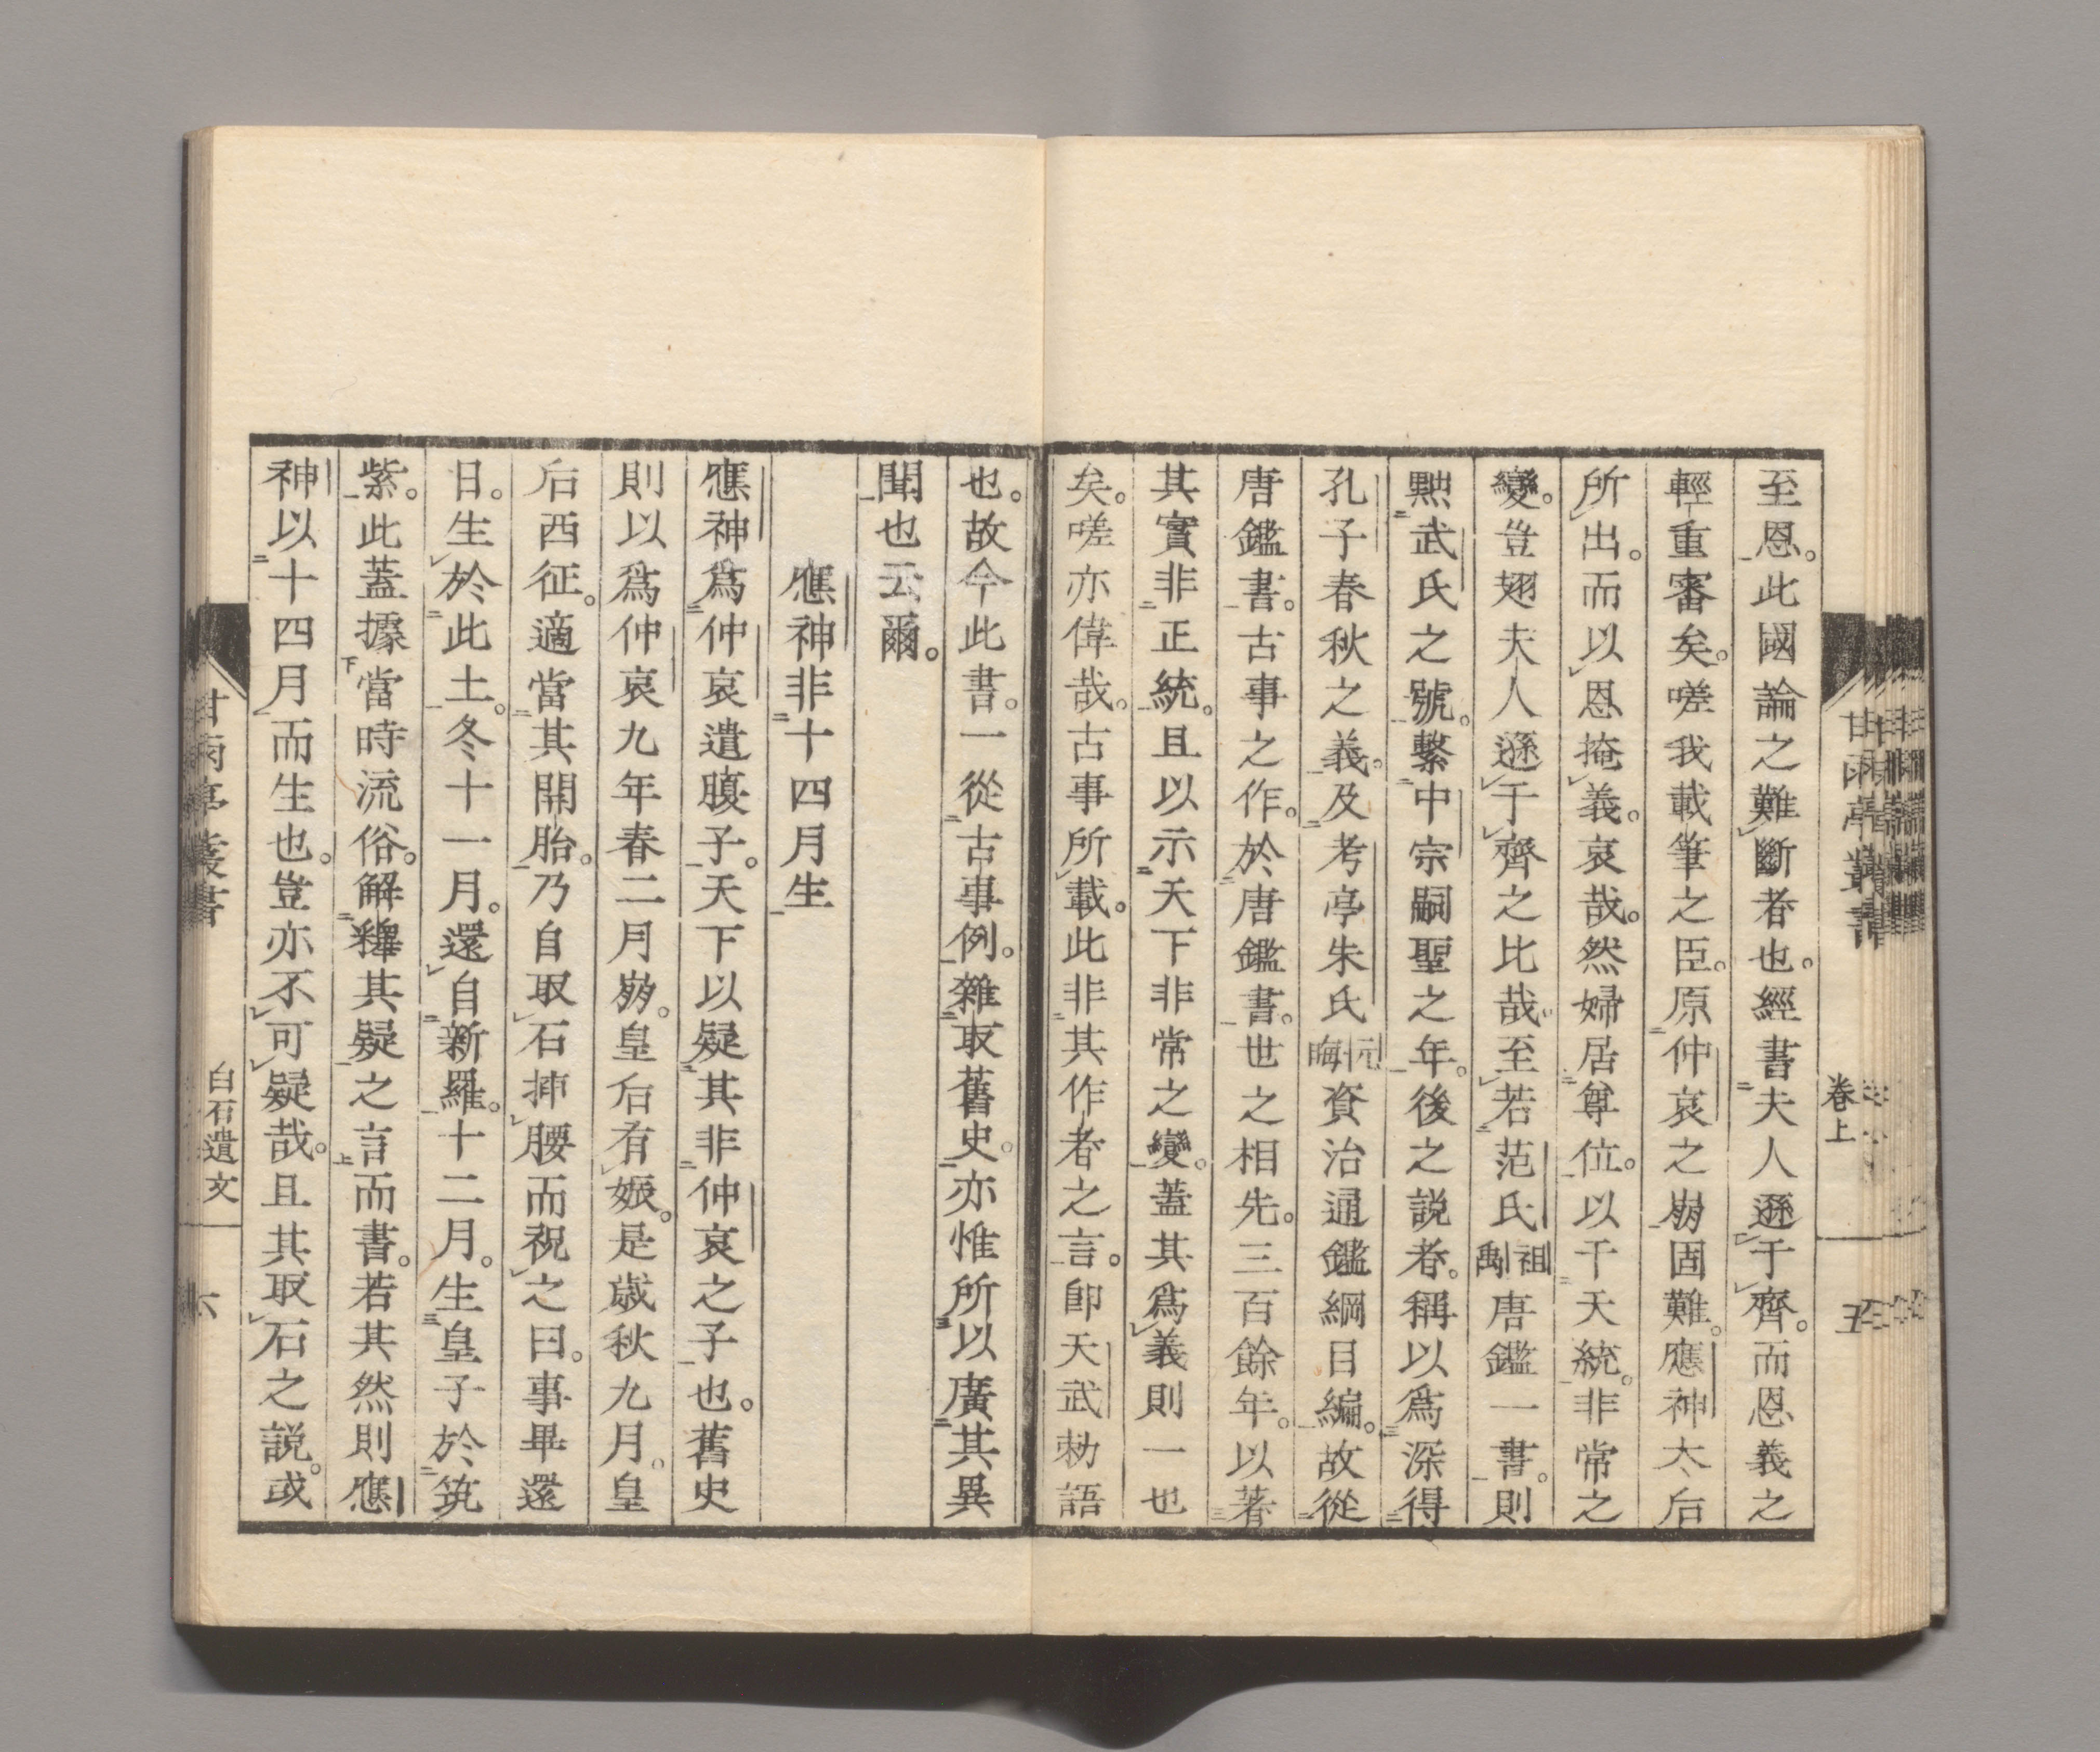 至恩。此國論之難斷者也。經書夫人遜于齊。而恩義之
輕重審矣。嗟我載筆之臣。原仲哀之崩固難。應神太后
所出。而以恩掩義。哀哉。然婦居尊位。以干天統。非常之
變。豈翅夫人遜于齊之比哉。至若范氏祖禹唐鑑一書。則
黜武氏之號。繫中宗嗣聖之年。後之説者。稱以爲深得
孔子春秋之義。及考亭朱氏元晦資治通鑑綱目編。故從
唐鑑書。古事之作。於唐鑑書。世之相先。三百餘年。以著
其實非正統。且以示天下非常之變。蓋其爲義則一也
矣。嗟亦偉哉。古事所載。此非其作者之言。卽天武勅語
甘雨亭叢書
卷上
五
也。故今此書。一從古事例。雜取舊史。亦惟所以廣其異
聞也云爾。
應神非十四月生
應神爲仲哀遺腹子。天下以疑其非仲哀之子也。舊史
則以爲仲哀九年春二月崩。皇后有娠。是歲秋九月。皇
后西征。適當其開胎。乃自取石挿腰而祝之曰。事畢還
日。生於此土。冬十一月。還自新羅。十二月。生皇子於筑
紫。此蓋據當時流俗。解釋其疑之言而書。若其然則應
神以十四月而生也。豈亦不可疑哉。且其取石之説。或
甘雨亭叢書
白石遺文
六